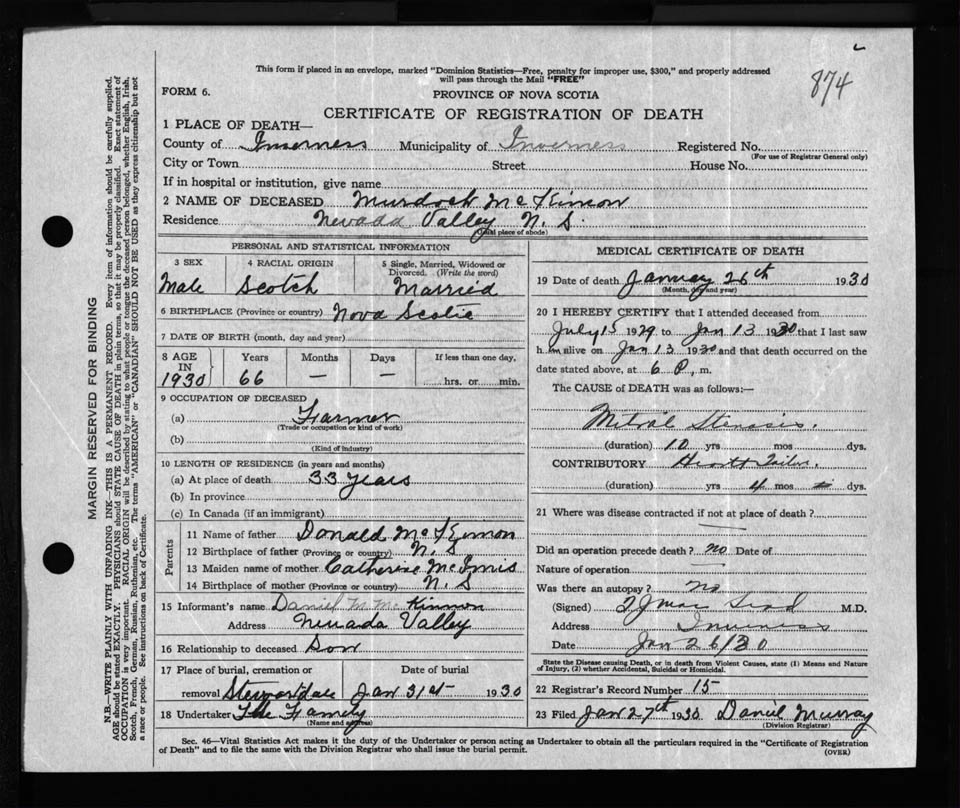 This form if placed in an envelope, marked "Dominion Statistics—Free, penalty for improper use, $300," and properly addressed
will pass through the Mail "FREE"
874
FORM 6.
PROVINCE OF NOVA SCOTIA
CERTIFICATE OF REGISTRATION OF DEATH
1 PLACE OF DEATH—
County of Inverness Municipality of Inverness Registered No.
(For use of Registrar General only)
City or Town Street House No.
If in hospital or institution, give name
2 NAME OF DECEASED Murdoch McKinnon
Residence Nevada Valley N. S.
(Usual place of abode)
PERSONAL AND STATISTICAL INFORMATION
3 SEX 4 RACIAL ORIGIN 5 Single, Married, Widowed or Divorced. (Write the word)
Male Scotch Married
6 BIRTHPLACE (Province or country) Nova Scotia
7 DATE OF BIRTH (month, day and year)
8 AGE IN 1930 Years Months Days If less than one day,
66 — — hrs. or min.
9 OCCUPATION OF DECEASED
(a) Farmer
(Trade or occupation or kind of work)
(b)
(Kind of industry)
10 LENGTH OF RESIDENCE (in years and months)
(a) At place of death 33 years
(b) In province
(c) In Canada (if an immigrant)
Parents
11 Name of father Donald McKinnon
12 Birthplace of father (Province or country) N. S
13 Maiden name of mother Catherine McInnis
14 Birthplace of mother (Province or country) N. S
15 Informant's name Daniel M McKinnon
Address Nevada Valley
16 Relationship to deceased Son
17 Place of burial, cremation or removal Date of burial
Stewartdale Jan 31st 1930
18 Undertaker The Family
(Name and address)
MEDICAL CERTIFICATE OF DEATH
19 Date of death January 26th 1930
(Month, day and year)
20 I HEREBY CERTIFY that I attended deceased from
July 15 1929 to Jan 13 1930 that I last saw
h im alive on Jan 13 1930 and that death occurred on the
date stated above, at 6 P. m.
The CAUSE of DEATH was as follows:—
Mitral Stenosis.
(duration) 10 yrs mos dys.
CONTRIBUTORY Heart Failure.
(duration) yrs 4 mos dys.
21 Where was disease contracted if not at place of death?
Did an operation precede death? no Date of
Nature of operation
Was there an autopsy? no
(Signed) M.D.
Address Inverness
Date Jan 26/30
State the Disease causing Death, or in death from Violent Causes, state (1) Means and Nature
of Injury, (2) whether Accidental, Suicidal or Homicidal.
22 Registrar's Record Number 15
23 Filed Jan 27th 1930 Daniel Murray
(Division Registrar)
Sec. 46—Vital Statistics Act makes it the duty of the Undertaker or person acting as Undertaker to obtain all the particulars required in the "Certificate of Registration
of Death" and to file the same with the Division Registrar who shall issue the burial permit.
(OVER)
MARGIN RESERVED FOR BINDING
N.B.—WRITE PLAINLY WITH UNFADING INK—THIS IS A PERMANENT RECORD. Every item of information should be carefully supplied.
AGE should be stated EXACTLY. PHYSICIANS should STATE CAUSE OF DEATH in plain terms, so that it may be properly classified. Exact statement of
OCCUPATION is very important. RACIAL ORIGIN will be described by stating to what people or tongue the deceased person belonged, whether English, Irish,
Scotch, French, German, Russian, Ruthenian, etc. The terms "AMERICAN" or "CANADIAN" SHOULD NOT BE USED as they express citizenship but not
a race or people. See instructions on back of Certificate.